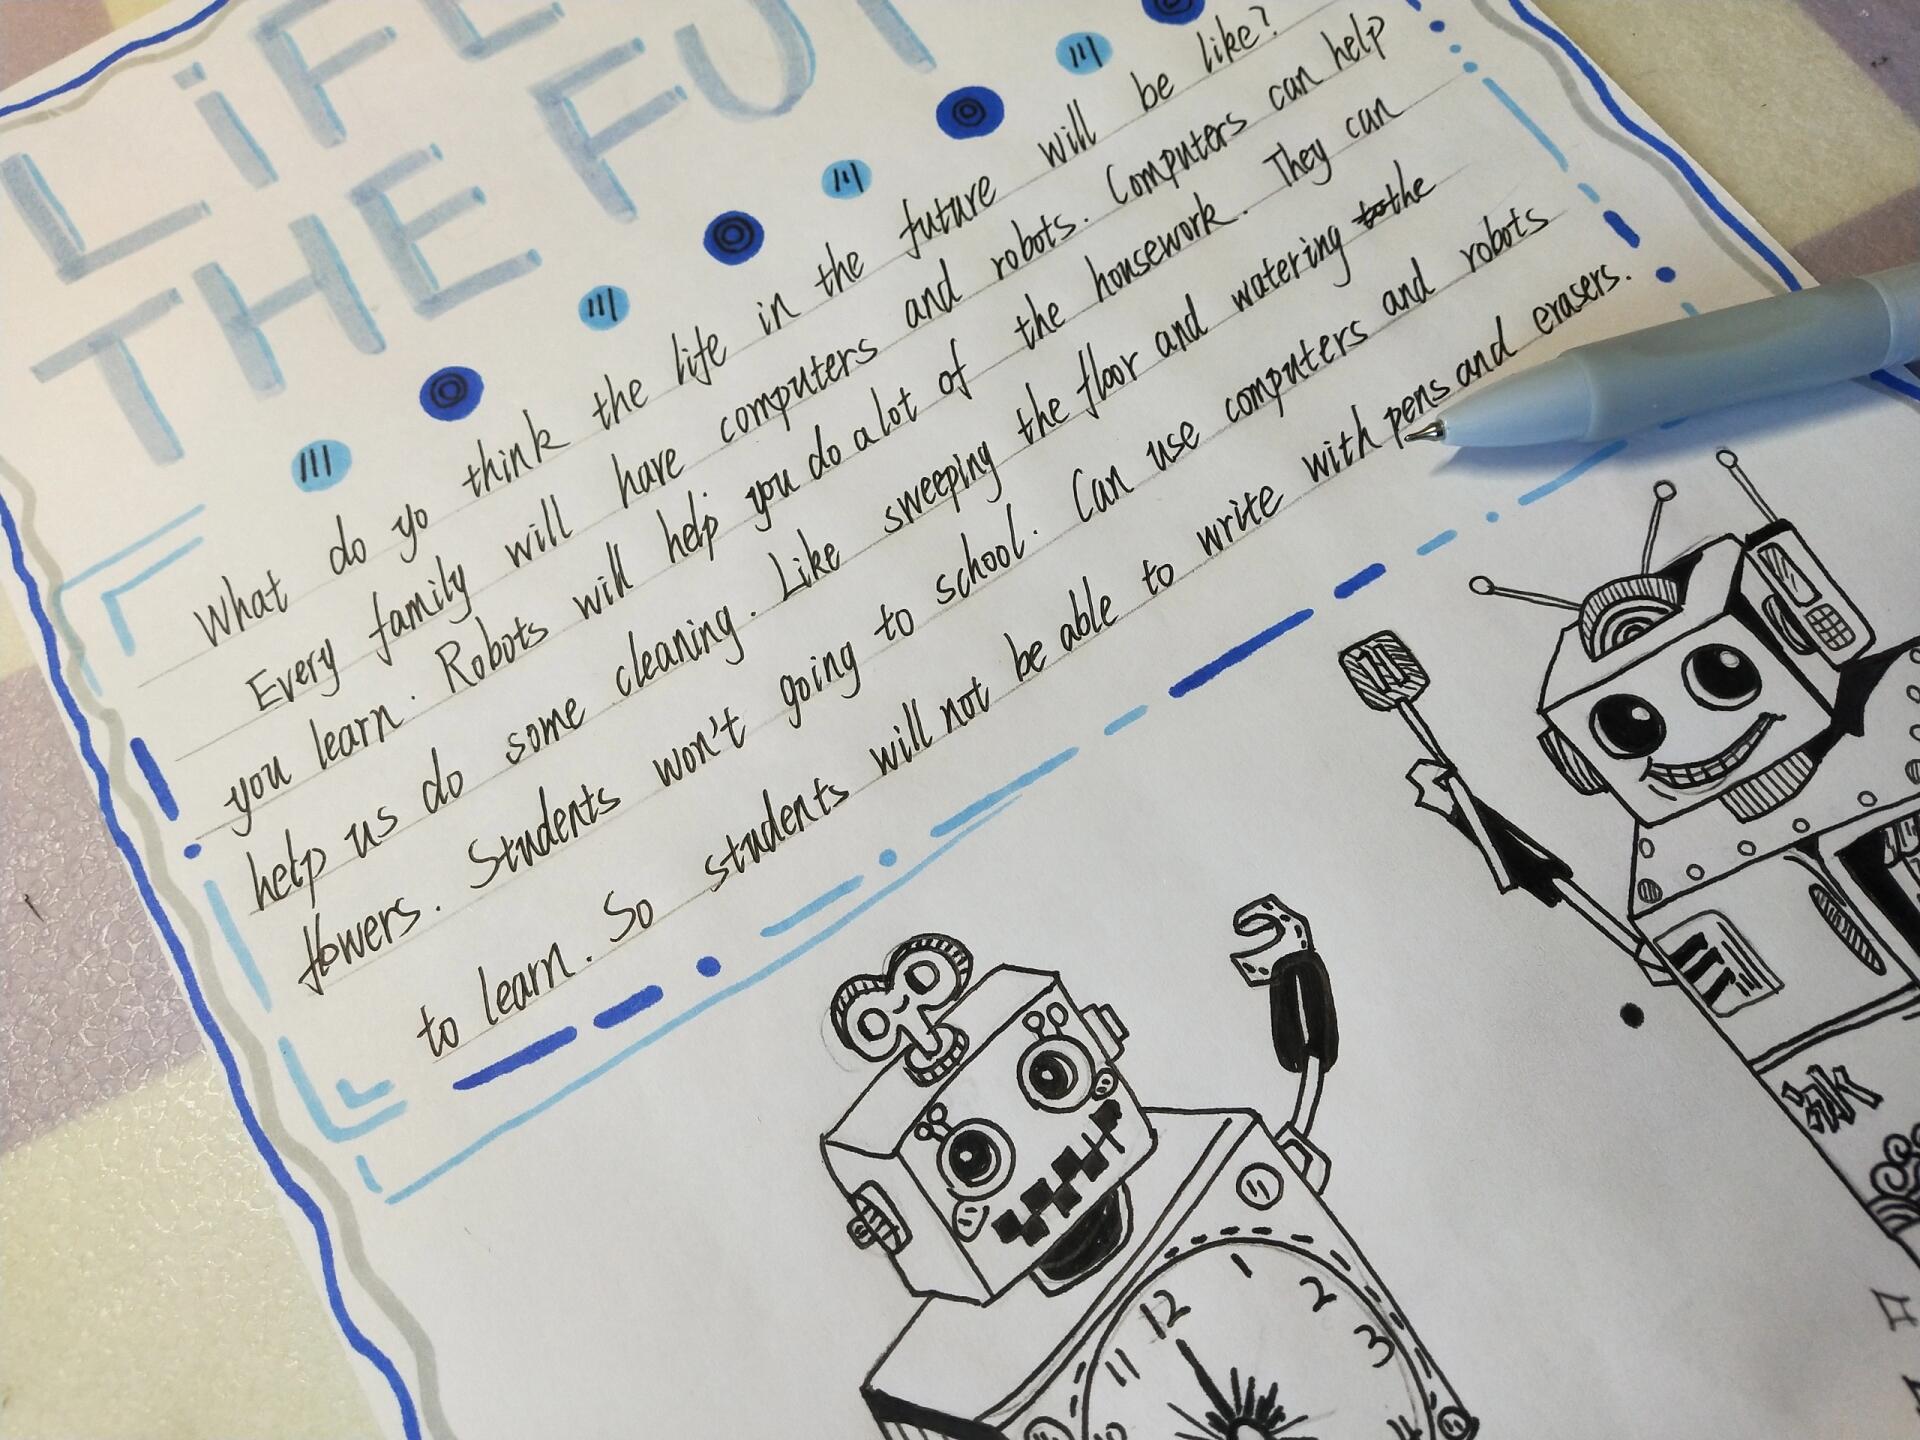 LiFE
THE FUT
What do yo think the life in the future will be like?
Every family will have computers and robots. Computers can help
you learn. Robots will help you do a lot of the housework. They can
help us do some cleaning. Like sweeping the floor and watering the
flowers. Students won't going to school. Can use computers and robots
to learn. So students will not be able to write with pens and erasers.
冰
12
1
2
3
11
10
4